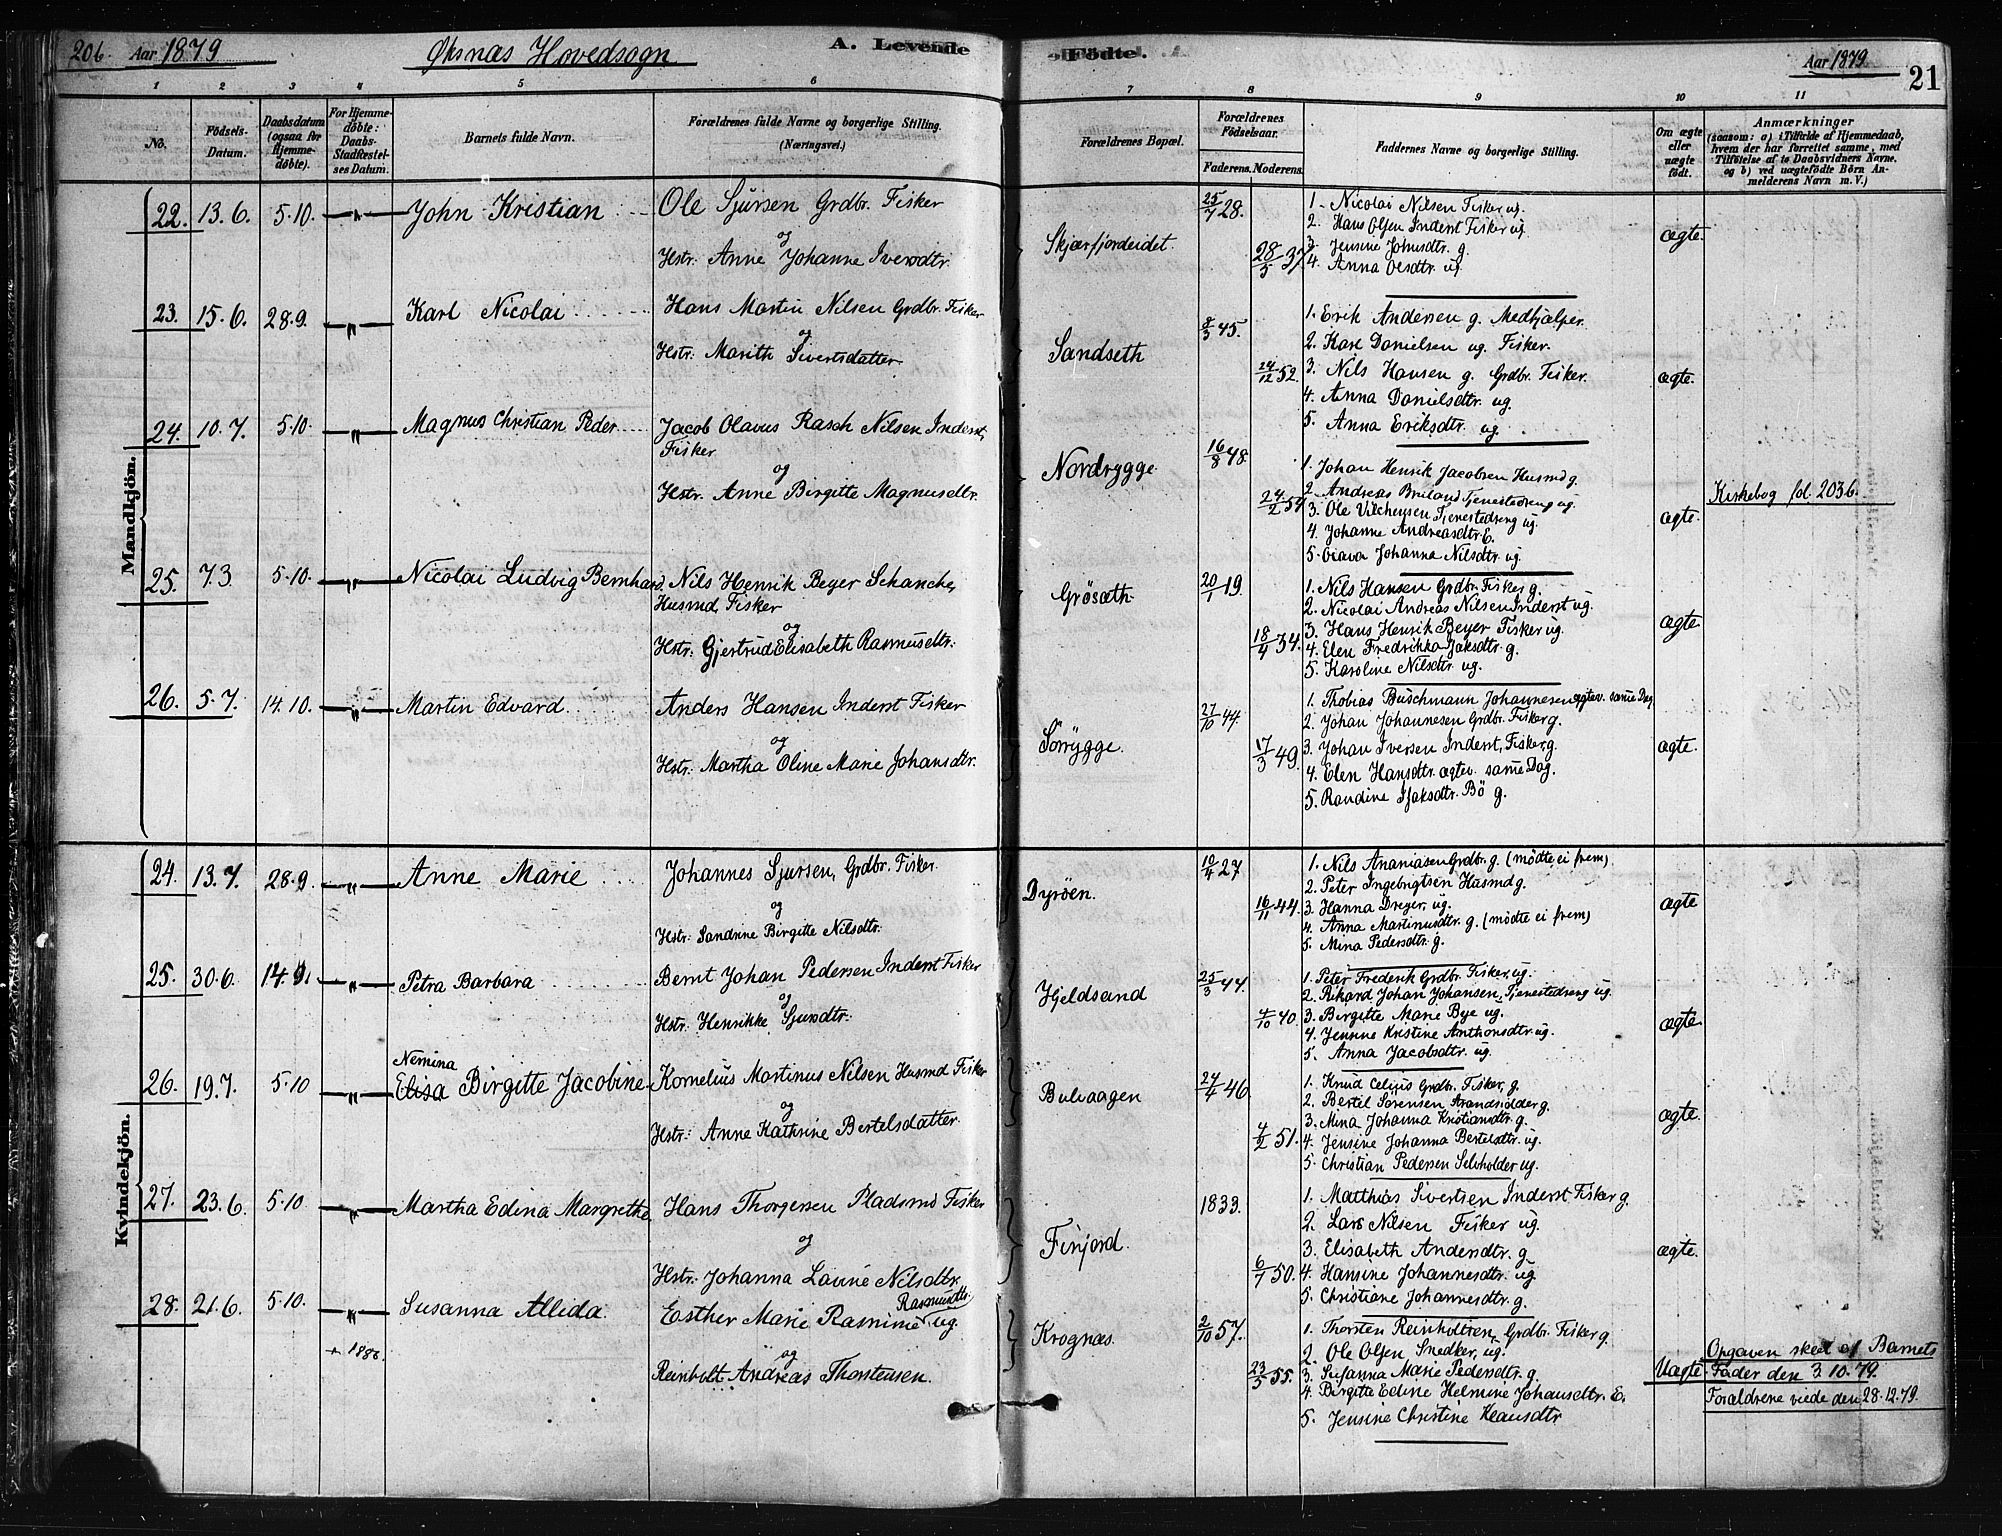 206. Aar 1879 Øksnæs Hovedsogn A. Levende Födte. Aar 1879 21
1 2 3 4 5 6 7 8 9 10 11
No.
Födsels-Datum.
Daabsdatum (ogsaa for Hjemme-döbte).
For Hjemme-döbte: Daabs-Stadfæstel-ses Datum.
Barnets fulde Navn.
Forældrenes fulde Navne og borgerlige Stilling.
(Næringsvei.)
Forældrenes Bopæl.
Forældrenes Födselsaar.
Faderens. Moderens.
Faddernes Navne og borgerlige Stilling.
Om ægte eller uægte födt.
Anmærkninger
(saasom: a) i Tilfælde af Hjemmedaab,
hvem der har forrettet samme, med
Tilföielse af to Daabsvidners Navne.
og b) ved uægtefödte Börn An-
melderens Navn m. V.)
Mandkjön.
22. 13.6. 5.10. —„— John Kristian Ole Sjursen Grdbr. Fisker
og
Hstr. Anne Johanne Iversdtr.
Skjærfjordeidet. 25/7 28. 28/5 37.
1. Nicolai Nilsen Fisker ug.
2. Hans Olsen Inderst Fisker ug.
3. Jensine Johnsdtr. g.
4. Anna Olsdtr. ug.
ægte.
23. 15.6. 28.9. —„— Karl Nicolai Hans Martin Nilsen Grdbr. Fisker
og
Hstr. Marith Sivertsdatter
Sandseth 8/3 45. 24/12 52.
1. Erik Andersen g. Medhjælper.
2. Karl Danielsen ug. Fisker.
3. Nils Hansen g. Grdbr. Fisker.
4. Anna Danielsdtr. ug.
5. Anna Eriksdtr. ug.
ægte.
24. 10.7. 5.10. —„— Magnus Christian Peder Jacob Olavus Rasch Nilsen Inderst,
Fisker
og
Hstr. Anne Birgitte Magnusdtr.
Nordrygge 16/8 48. 24/2 54
1. Johan Henrik Jacobsen Husmd g.
2. Andreas Tjenestedreng ug.
3. Ole Tjenestedreng ug.
4. Johanne Andreasdtr. E.
5. Johanna Nilsdtr. ug.
ægte.
Kirkebog fol. 203 6.
25. 7.3. 5.10. —„— Nicolai Ludvig Bernhard Nils Henrik Beyer Schanche,
Husmd, Fisker
og
Hstr: Gjertrud Elisabeth Rasmusdtr:
Grösæth 20/1 19. 18/4 34.
1. Nils Hansen Grdbr. Fisker g.
2. Nicolai Andreas Nilsen Inderst ug.
3. Hans Henrik Beyer Fisker ug.
4. Elen Fredrikka Isaksdtr. g.
5. Karoline Nilsdtr. ug.
ægte
26. 5.7. 14.10. —„— Martin Edvard. Anders Hansen Inderst Fisker
og
Hstr. Martha Oline Marie Johansdtr.
Sörrygge. 27/10 44 17/3 49.
1. Thobias Buschmann Johannesen ægtev. samme Dag
2. Johan Johannesen Grdbr. Fisker g.
3. Johan Iversen Inderst, Fisker g.
4. Elen Hansdtr. ægtev. samme Dag.
5. Randine Isaksdtr. Bö g.
ægte.
Kvindekjön.
24. 13.7. 28.9. —„— Anne Marie Johannes Sjursen, Grdbr. Fisker.
og
Hstr: Sandrine Birgitte Nilsdtr.
Dyröen. 19/4 27 16/11 44.
1. Nils Ananiasen Grdbr. g. (mödte ei frem).
2. Peter Ingebrigtsen Husmd g.
3. Hanna Dreyer, ug.
4. Anna Martinusdtr. g. (mödte ei frem)
5. Mina Pedersdtr. g.
ægte
25. 30.6. 14.9. —„— Petra Barbara Bernt Johan Pedersen Inderst Fisker
og
Hstr. Henrikke Sjursdtr:
Hjeldsand 25/3 44. 4/10 40.
1. Peter Frederik Grdbr. Fisker, ug.
2. Rikard Johan Johansen, Tjenestedreng ug.
3. Birgitte Marie Bye ug.
4. Jensine Kristine Anthonsdtr. ug.
5. Anna Jacobsdtr. ug.
ægte.
Nemina
26. 19.7. 5.10 —„— Elisa Birgitte Jacobine Kornelius Martinus Nilsen Husmd Fisker
og
Hstr: Anne Kathrine Bertelsdatter.
Bulvaagen 27/4 46. 4/2 51.
1. Knud Celius Grdbr. Fisker, g.
2. Bertel Sörensen Strandsidder g.
3. Mina Johanna Kristiansdtr. g.
4. Jensine Johanna Bertelsdtr. ug.
5. Christian Pedersen Selvholder ug.
ægte.
27. 23.6. 5.10 —„— Martha Edina Margrethe Hans Thorgersen Pladsmd Fisker
og
Hstr: Johanna Lavine Nilsdtr.
Finjord. 1833. 6/7 50.
1. Matthias Sivertsen Inderst Fisker g.
2. Lars Nilsen Fisker ug.
3. Elisabeth Andersdtr. g
4. Hansine Johannesdtr. ug.
5. Christiane Johannesdtr. g.
ægte.
28. 21.6. 5.10. —„— Susanna Allida. Esther Marie Rasmine Rasmusdtr. ug.
+ 1880.
og
Reinholt Andreas Thorstensen.
Krognæs. 2/10 57. 23/5 55.
1. Thorsten Reinholtsen, Grdbr. Fisker g.
2. Ole Olsen Snedker, ug.
3. Susanna Marie Pedersdtr. g.
4. Birgitte Edine Helmine Johansdtr. E.
5. Jensine Christine Klausdtr
Uægte
Opgaven skeet af Barnets
Fader den 3.10.79.
Forældrene viede den 28.12.79.